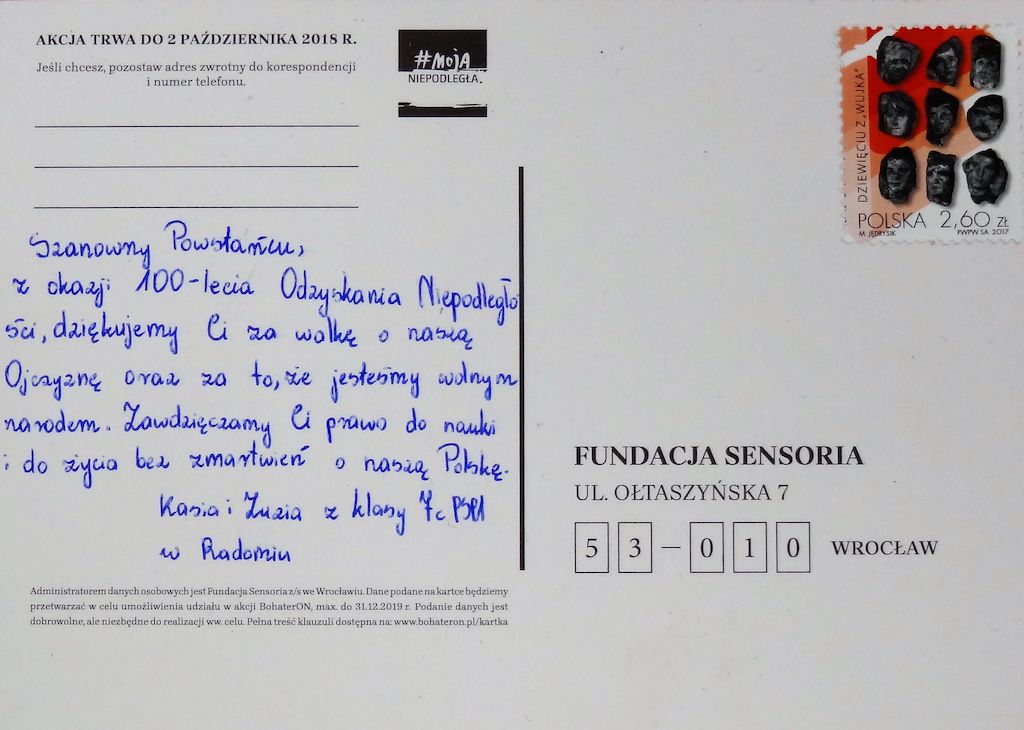 AKCJA TRWA DO 2 PAŹDZIERNIKA 2018 R.
Jeśli chcesz, pozostaw adres zwrotny do korespondencji
i numer telefonu.
#MOJA
NIEPODLEGŁA.
DZIEWIĘCIU Z „WUJKA"
POLSKA 2,60 ZŁ
M. JĘDRYSIK PWPW SA. 2017
Szanowny Powstańcu,
z okazji 100-lecia Odzyskania Niepodległo
ści, dziękujemy Ci za walkę o naszą
Ojczyznę oraz za to, że jesteśmy wolnym
narodem. Zawdzięczamy Ci prawo do nauki
i do życia bez zmartwień o naszą Polskę.
Kasia i Zuzia z klasy 7c PSP1
w Radomiu
FUNDACJA SENSORIA
UL. OŁTASZYŃSKA 7
53-010 WROCŁAW
Administratorem danych osobowych jest Fundacja Sensoria z/s we Wrocławiu. Dane podane na kartce będziemy
przetwarzać w celu umożliwienia udziału w akcji BohaterON, max. do 31.12.2019 r. Podanie danych jest
dobrowolne, ale niezbędne do realizacji ww. celu. Pełna treść klauzuli dostępna na: www.bohateron.pl/kartka